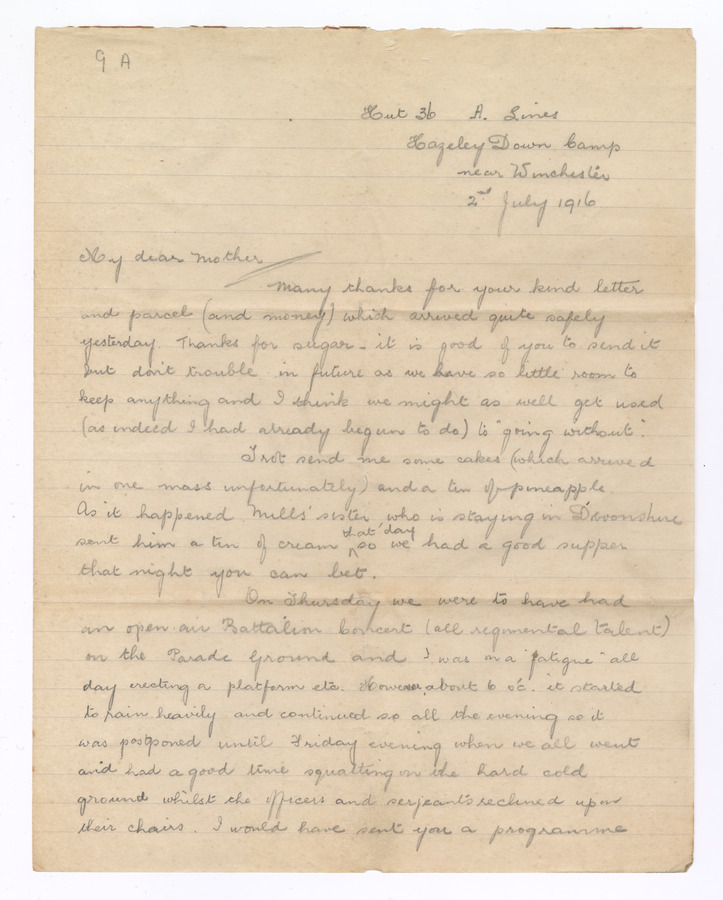 9 A
Hut 36 A. Lines
Hazeley Down Camp
near Winchester
2nd July 1916
My dear Mother
Many thanks for your kind letter
and parcel (and money) which arrived quite safely
yesterday. Thanks for sugar - it is good of you to send it
but don't trouble in future as we have so little room to
keep anything and I think we might as well get used
(as indeed I had already begun to do) to "going without".
Trot send me some cakes (which arrived
in one mass unfortunately) and a tin of pineapple.
As it happened Mills' sister who is staying in Devonshire
sent him a tin of cream that day so we had a good supper
that night you can bet.
On Thursday we were to have had
an open air Battalion Concert (all regimental talent)
on the Parade Ground and I was on a "fatigue" all
day erecting a platform etc. However about 6 o'c. it started
to rain heavily and continued so all the evening so it
was postponed until Friday evening when we all went
and had a good time squatting on the hard cold
ground whilst the officers and serjeants reclined upon
their chairs. I would have sent you a programme